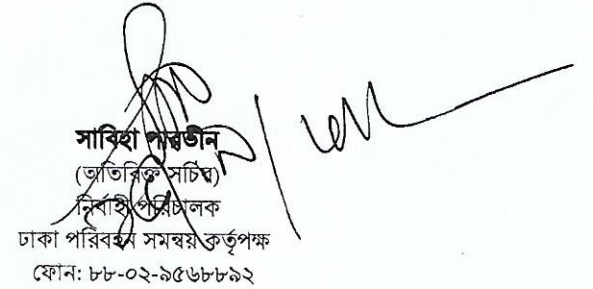 সাবিহা পারভীন
(অতিরিক্ত সচিব)
নির্বাহী পরিচালক
ঢাকা পরিবহন সমন্বয় কর্তৃপক্ষ
ফোন: ৮৮-০২-৯৫৬৮৮৯২